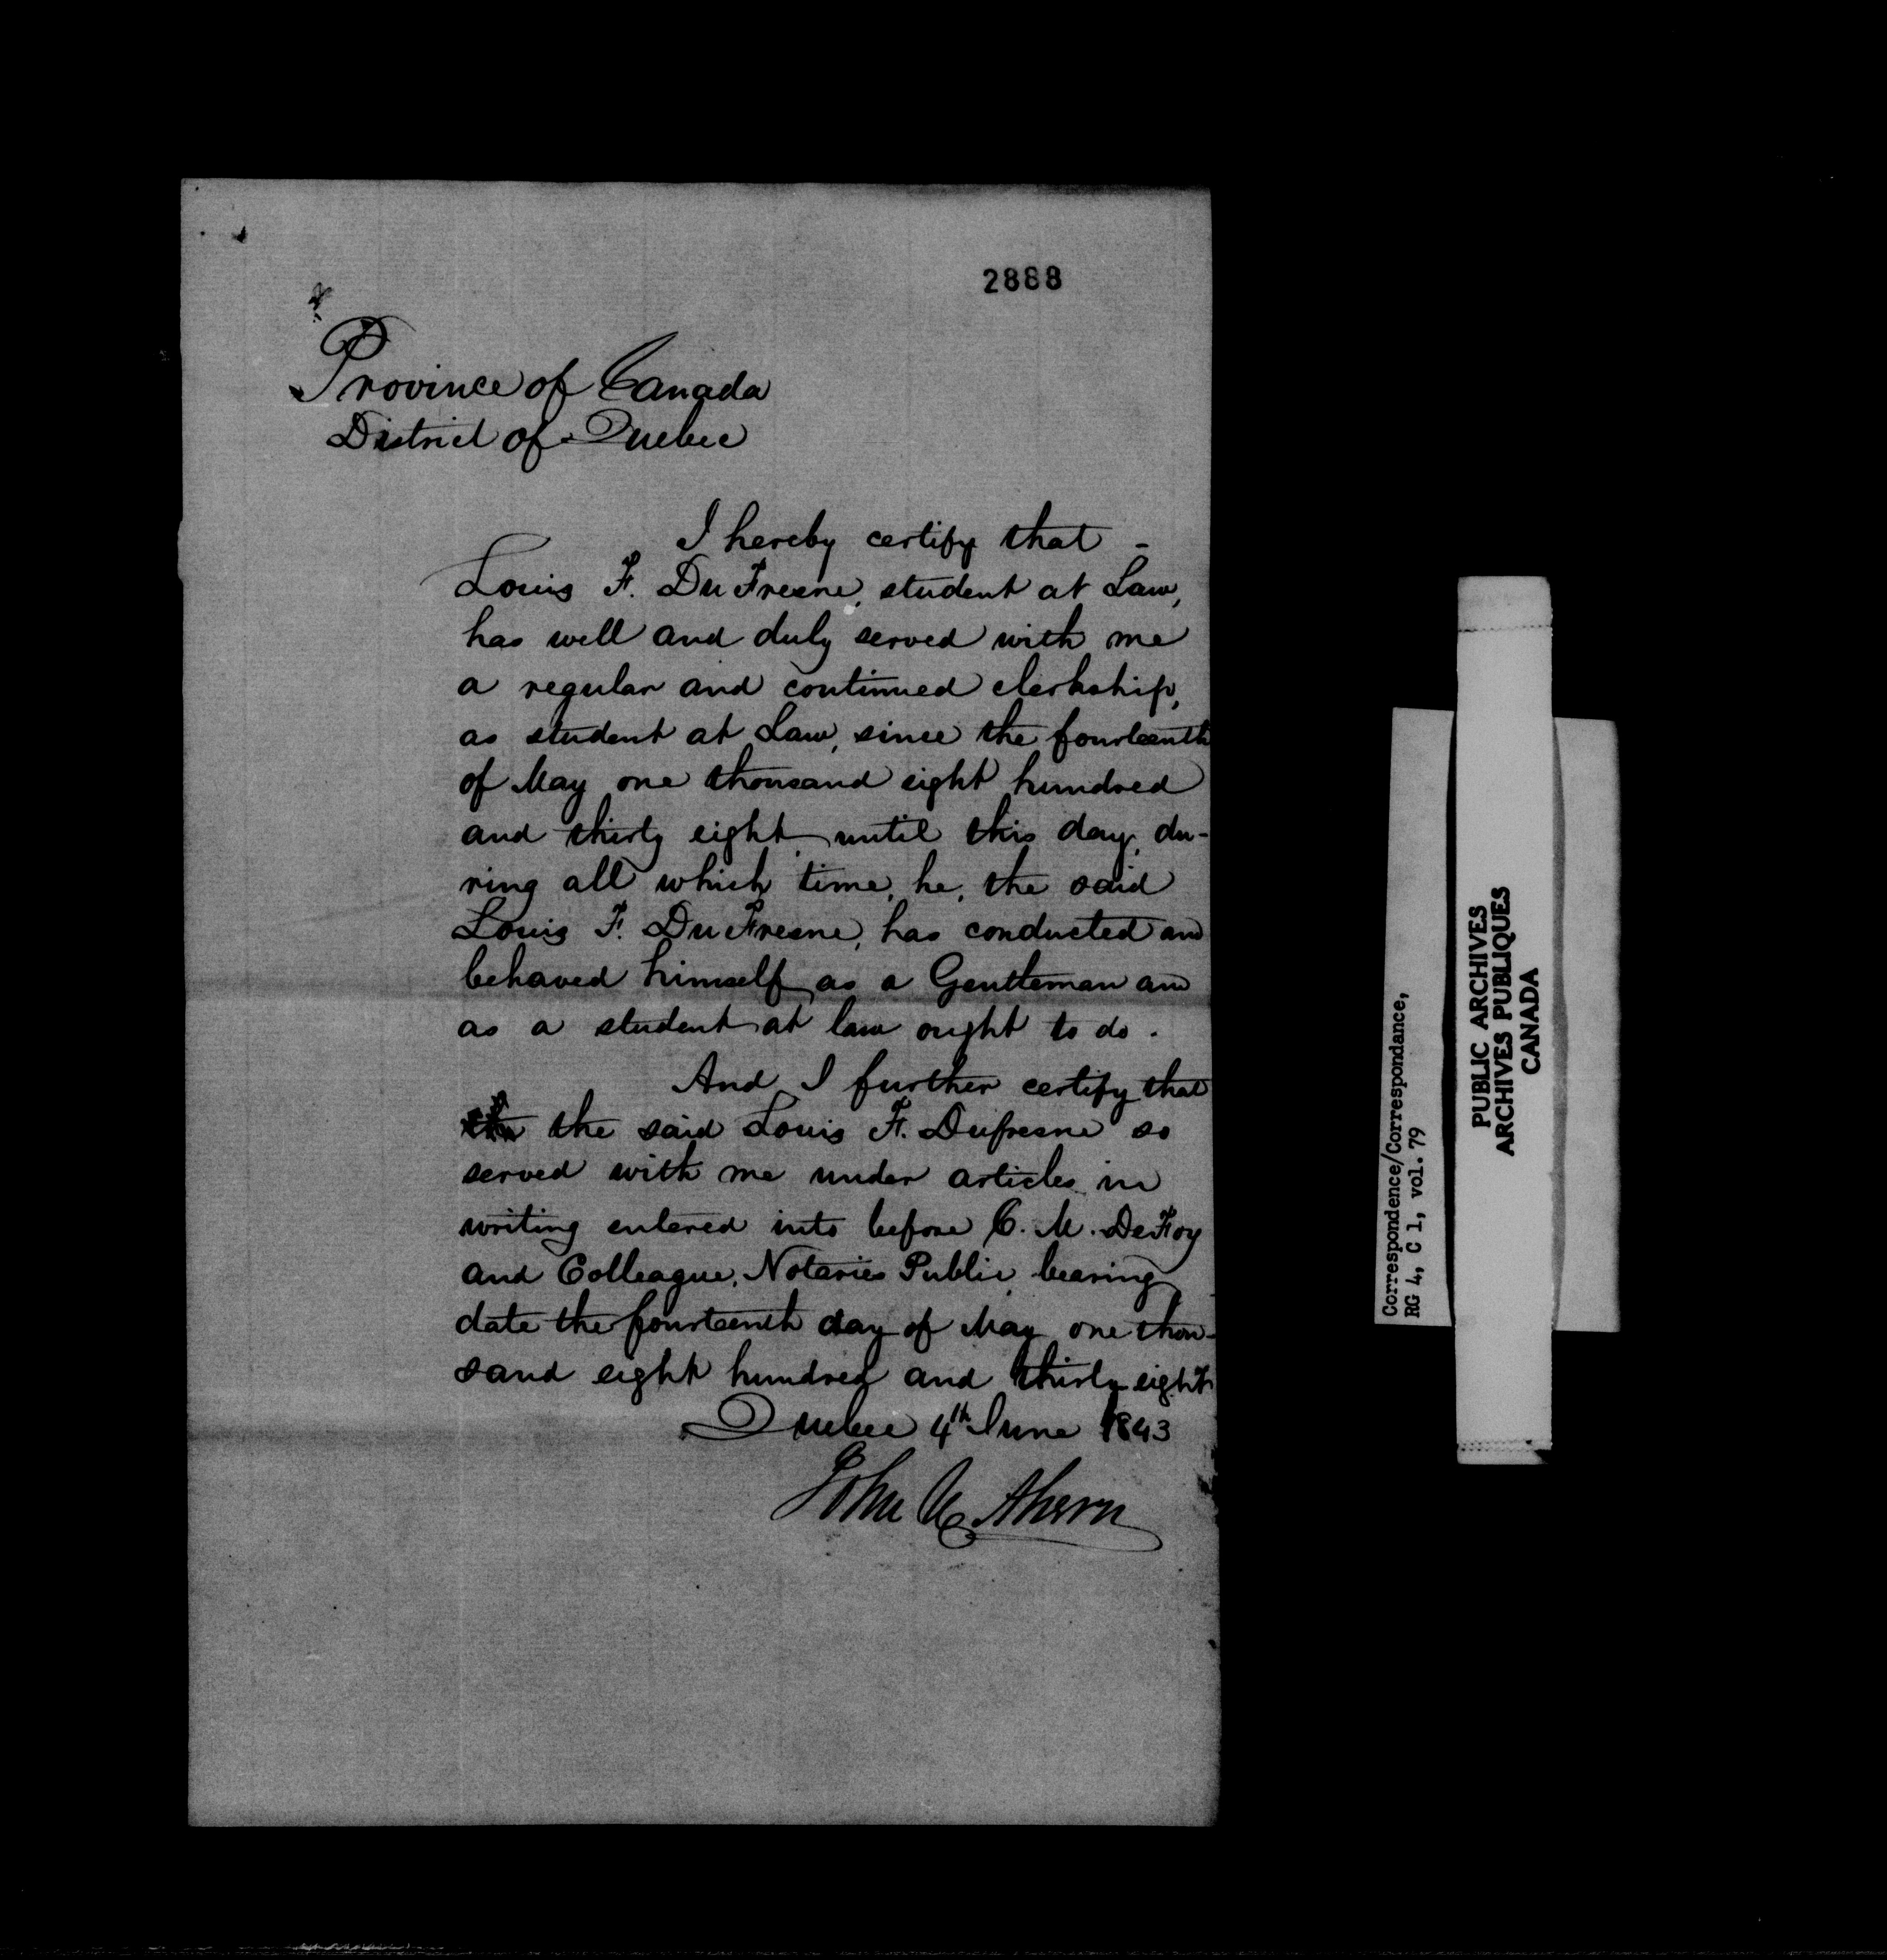 2888
Province of Canada
District of Quebec
I hereby certify that -
Louis F. DuFresne, student at Law,
has well and duly served with me
a regular and continued clerkship,
as student at Law, since the fourteenth
of May one thousand eight hundred
and thirty eight, until this day, du-
ring all which time, he, the said
Louis F. DuFresne, has conducted and
behaved himself as a Gentleman and
as a student at law ought to do.
And I further certify that
the said Louis F. Dufresne so
served with me under articles in
writing entered into before C. M. DeFoy
and Colleague, Notaries Public, bearing
date the fourteenth day of May one thou-
sand eight hundred and thirty eight
Quebec 4th June 1843
John Ahern
Correspondence/Correspondance,
RG 4, C 1, vol. 79
PUBLIC ARCHIVES
ARCHIVES PUBLIQUES
CANADA